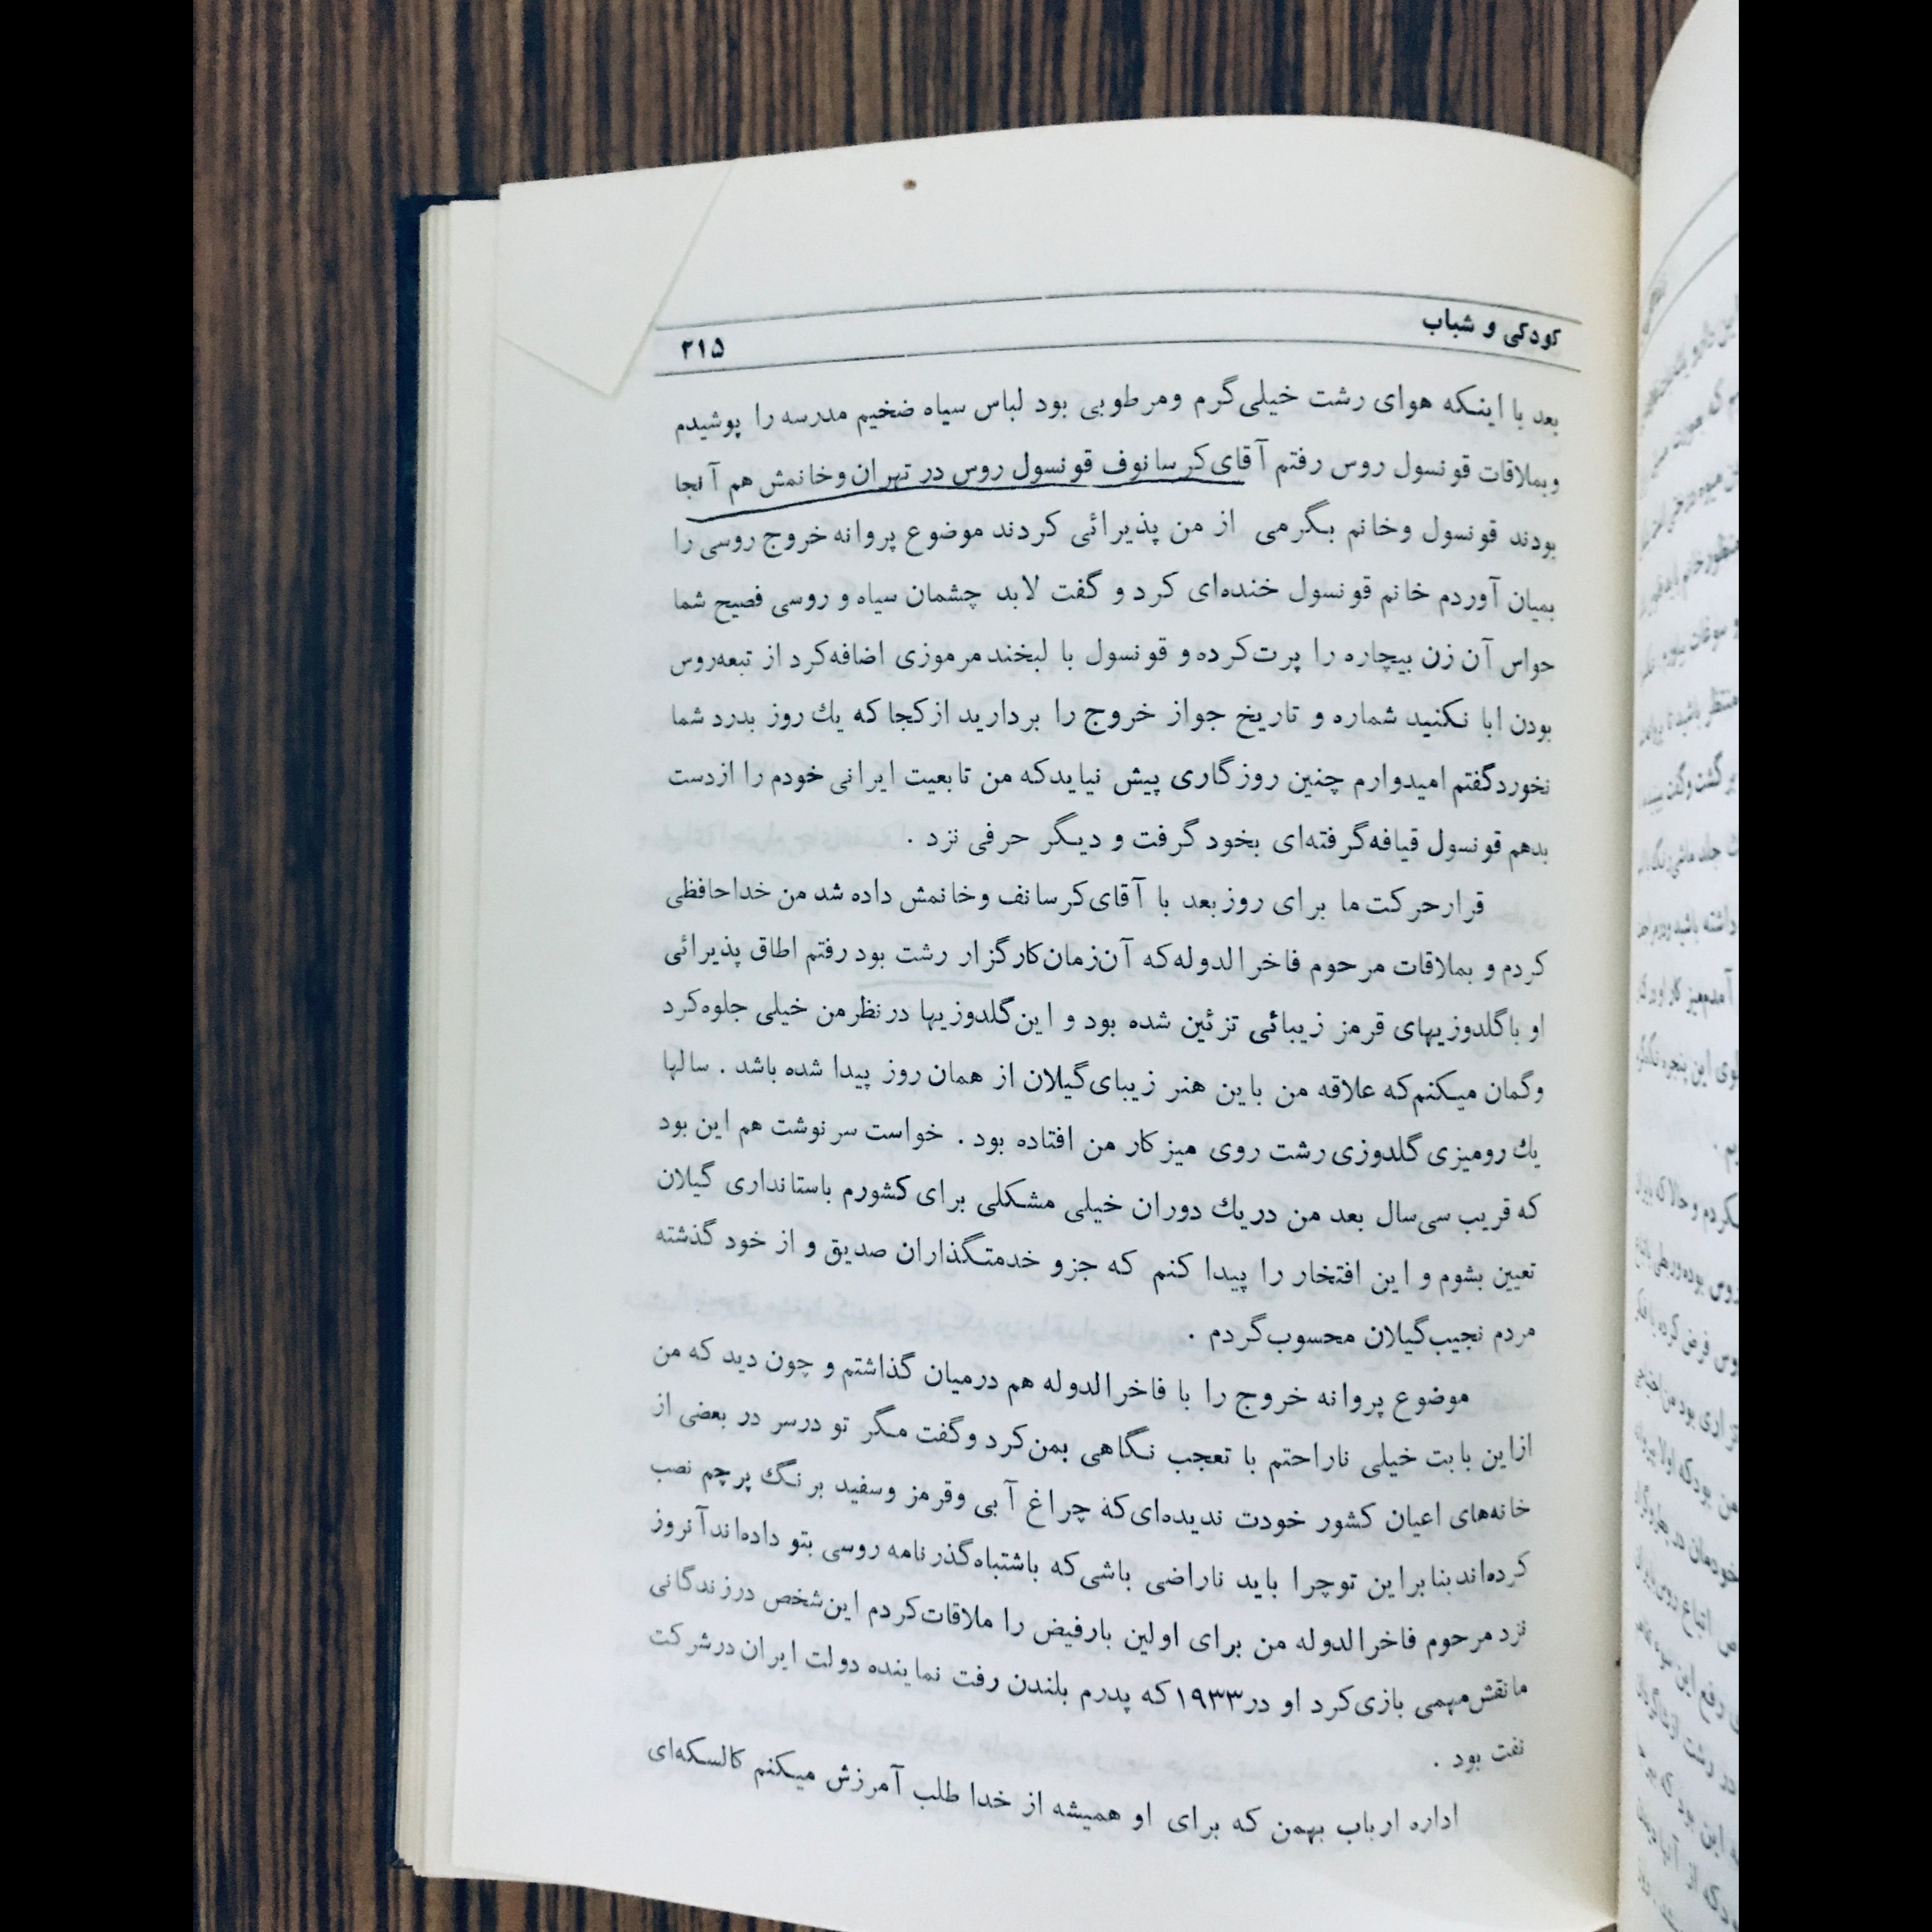 کودکی و شباب
۲۱۵
بعد با اینکه هوای رشت خیلی گرم ومرطوبی بود لباس سیاه ضخیم مدرسه را پوشیدم
وبملاقات قونسول روس رفتم آقای کرسانوف قونسول روس در تهران وخانمش هم آنجا
بودند قونسول وخانم بگرمی از من پذیرائی کردند موضوع پروانه خروج روسی را
بمیان آوردم خانم قونسول خنده‌ای کرد و گفت لابد چشمان سیاه و روسی فصیح شما
حواس آن زن بیچاره را پرت کرده و قونسول با لبخند مرموزی اضافه کرد از تبعه روس
بودن ابا نکنید شماره و تاریخ جواز خروج را بردارید از کجا که یك روز بدرد شما
نخورد گفتم امیدوارم چنین روزگاری پیش نیاید که من تابعیت ایرانی خودم را ازدست
بدهم قونسول قیافه گرفته‌ای بخود گرفت و دیگر حرفی نزد .
قرارحرکت ما برای روز بعد با آقای کرسانف وخانمش داده شد من خداحافظی
کردم و بملاقات مرحوم فاخرالدوله که آن زمان کارگزار رشت بود رفتم اطاق پذیرائی
او با گلدوزیهای قرمز زیبائی تزئین شده بود و این گلدوزیها درنظر من خیلی جلوه کرد
وگمان میکنم که علاقه من باین هنر زیبای گیلان از همان روز پیدا شده باشد . سالها
یك رومیزی گلدوزی رشت روی میز کار من افتاده بود . خواست سرنوشت هم این بود
که قریب سی سال بعد من دریك دوران خیلی مشکلی برای کشورم باستانداری گیلان
تعیین بشوم و این افتخار را پیدا کنم که جزو خدمتگذاران صدیق و از خود گذشته
مردم نجیب گیلان محسوب گردم .
موضوع پروانه خروج را با فاخرالدوله هم درمیان گذاشتم و چون دید که من
ازاین بابت خیلی ناراحتم با تعجب نگاهی بمن کرد وگفت مگر تو درسر در بعضی از
خانه‌های اعیان کشور خودت ندیده‌ای که چراغ آبی وقرمز وسفید برنگ پرچم نصب
کرده‌اند بنابراین توچرا باید ناراضی باشی که باشتباه گذرنامه روسی بتو داده‌اند آنروز
نزد مرحوم فاخرالدوله من برای اولین بارفیض را ملاقات کردم این شخص درزندگانی
ما نقش مهمی بازی کرد او در ۱۹۳۳ که پدرم بلندن رفت نماینده دولت ایران درشرکت
نفت بود .
اداره ارباب بهمن که برای او همیشه از خدا طلب آمرزش میکنم کالسکه‌ای